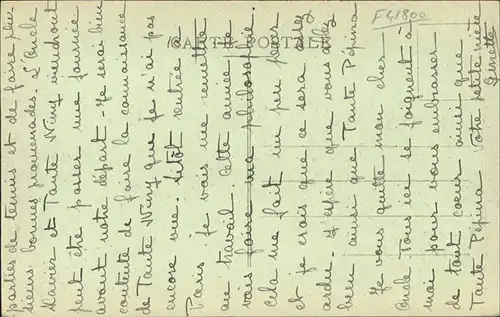 parties de tennis et de faire plu-
sieurs bonnes promenades. L'Oncle
Xavier et Tante Winy viendront
peut être passer une journée
avant notre départ. Je serai bien
contente de faire la connaissance
de Tante Winy que je n'ai pas
encore vue. Sitôt rentrée à
Paris je vais me remettre
au travail. Cette année je
vais faire ma philosophie
cela me fait un peu peur
et je crois que ce sera assez
ardu. J'espère que vous allez
bien ainsi que Tante Pépina
Je vous quitte mon cher
Oncle. Tous ici se joignent à
moi pour vous embrasser
de tout coeur ainsi que
Tante Pépina. Votre petite nièce
Ginette
CARTE POSTALE
F41800